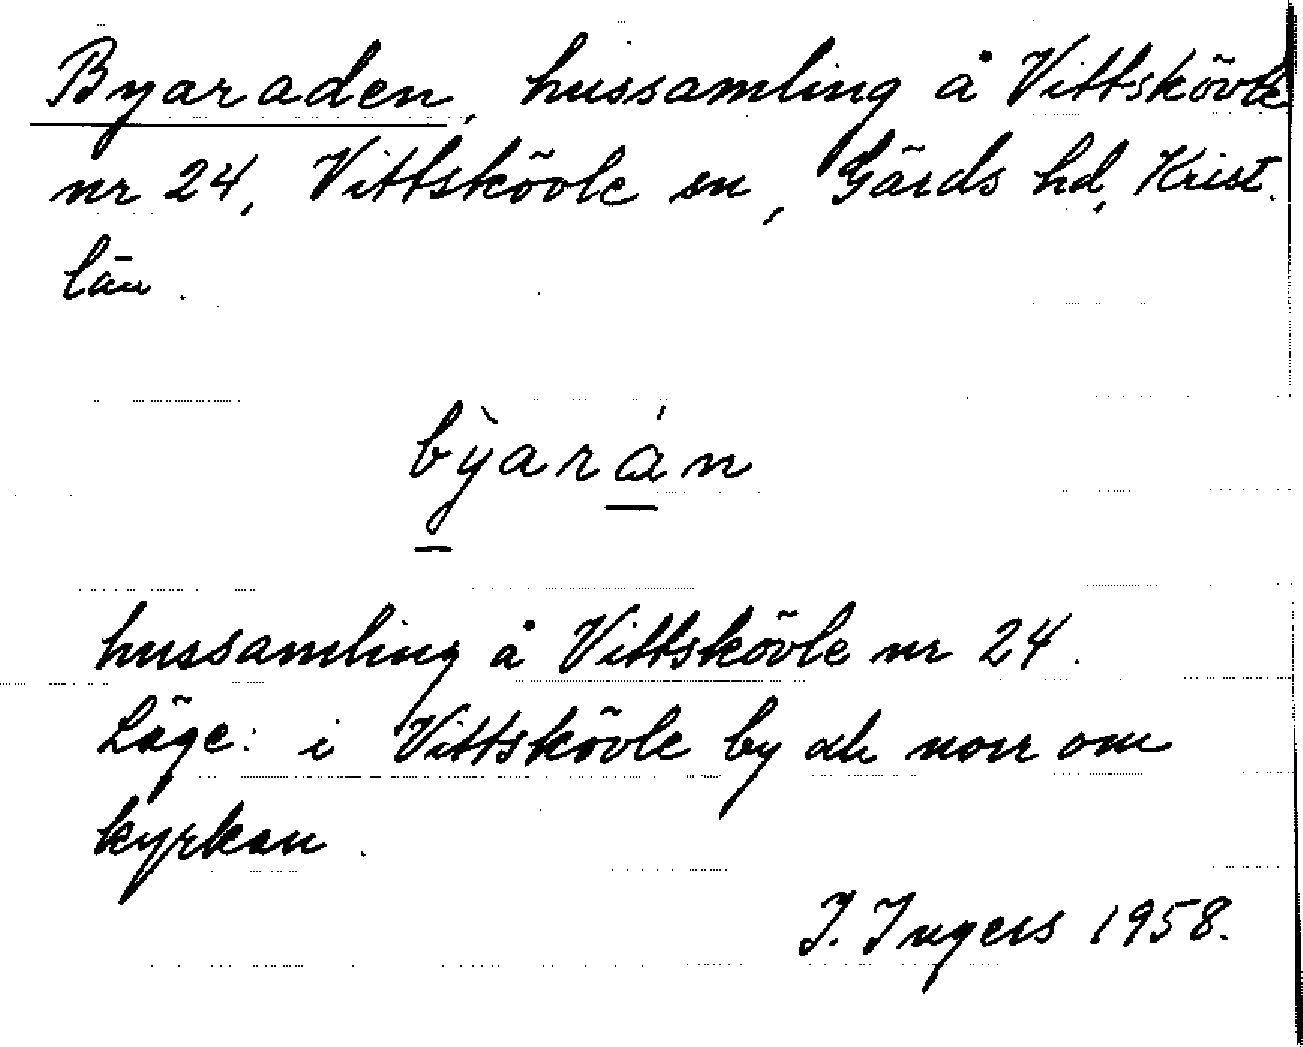 Byaraden, hussamling å Vittskövle
nr 24, Vittskövle sn, Gärds hd, Krist.
län.
bỳarán
hussamling å Vittskövle nr 24.
Läge: i Vittskövle by ... norr om
kyrkan.
I. Ingers 1958.